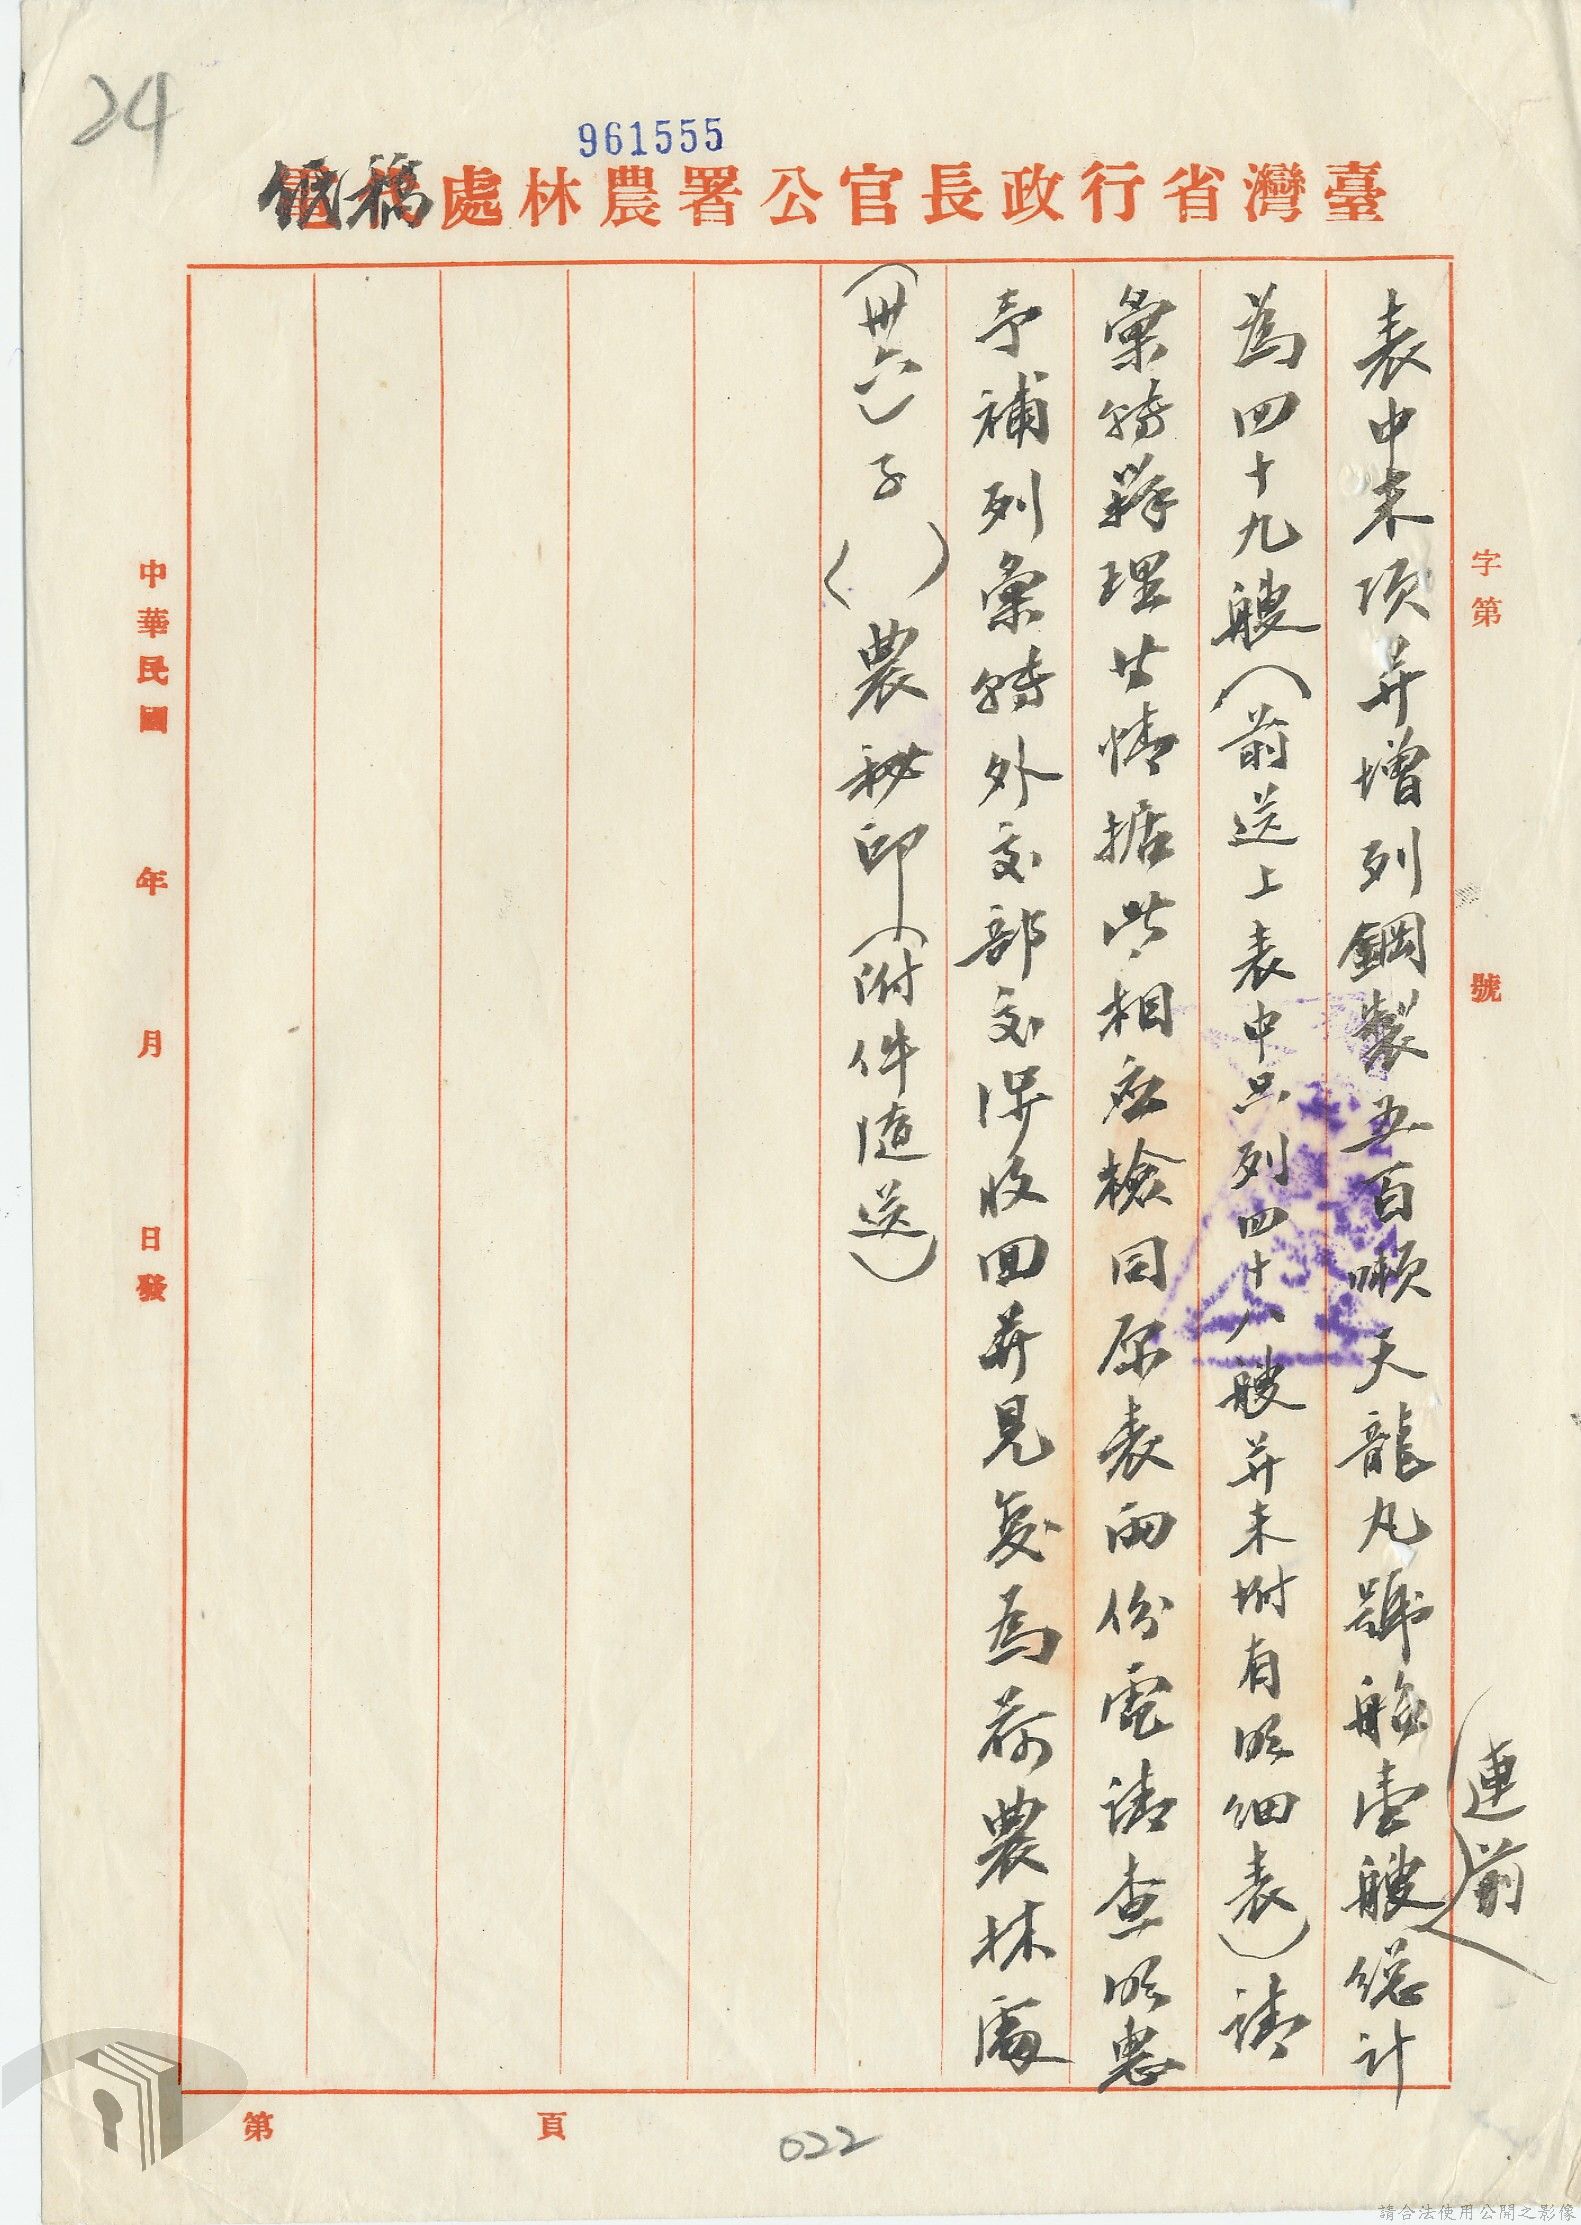 24
961555
臺灣省行政長官公署農林處稿紙
字第 號
連前
表中末項并增列鋼製五百噸天龍丸號船壹艘總計
為四十九艘（前送上表中只列四十八艘并未附有明細表）請
彙轉辦理廿情据此相應檢同原表兩份電請查明惠
予補列彙轉外交部交涉收回并見复為荷農林處
（卅六）子（ ）農秘印（附件隨送）
中華民國 年 月 日發
第 頁
022
請合法使用公開之影像